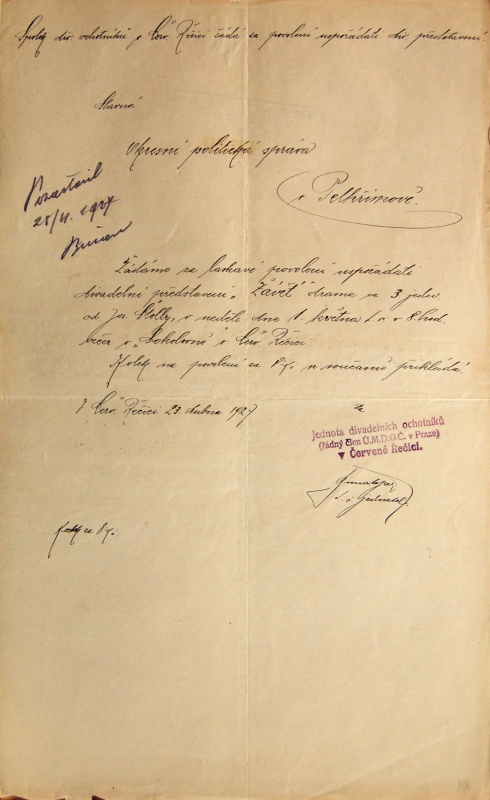 Spolek div. ochotníků v Červ. Řečici žádá za povolení uspořádati div. představení.
Slavná
Okresní politická správa
v Pelhřimově.
25/4. 1927
Žádáme za laskavé povolení uspořádati
divadelní představení „Závěť" drama ve 3 jedn.
od Jos. Štolby, v neděli dne 1. května t. r. v 8 hod.
večer v „Sokolovně" v Červ. Řečici.
Kolek na povolení za 8 Kč se současně předkládá.
V Červ. Řečici 23 dubna 1927
Za
Jednota divadelních ochotníků
(řádný člen Ú.M.D.O.Č. v Praze)
v Červené Řečici.
t. č. jednatel.